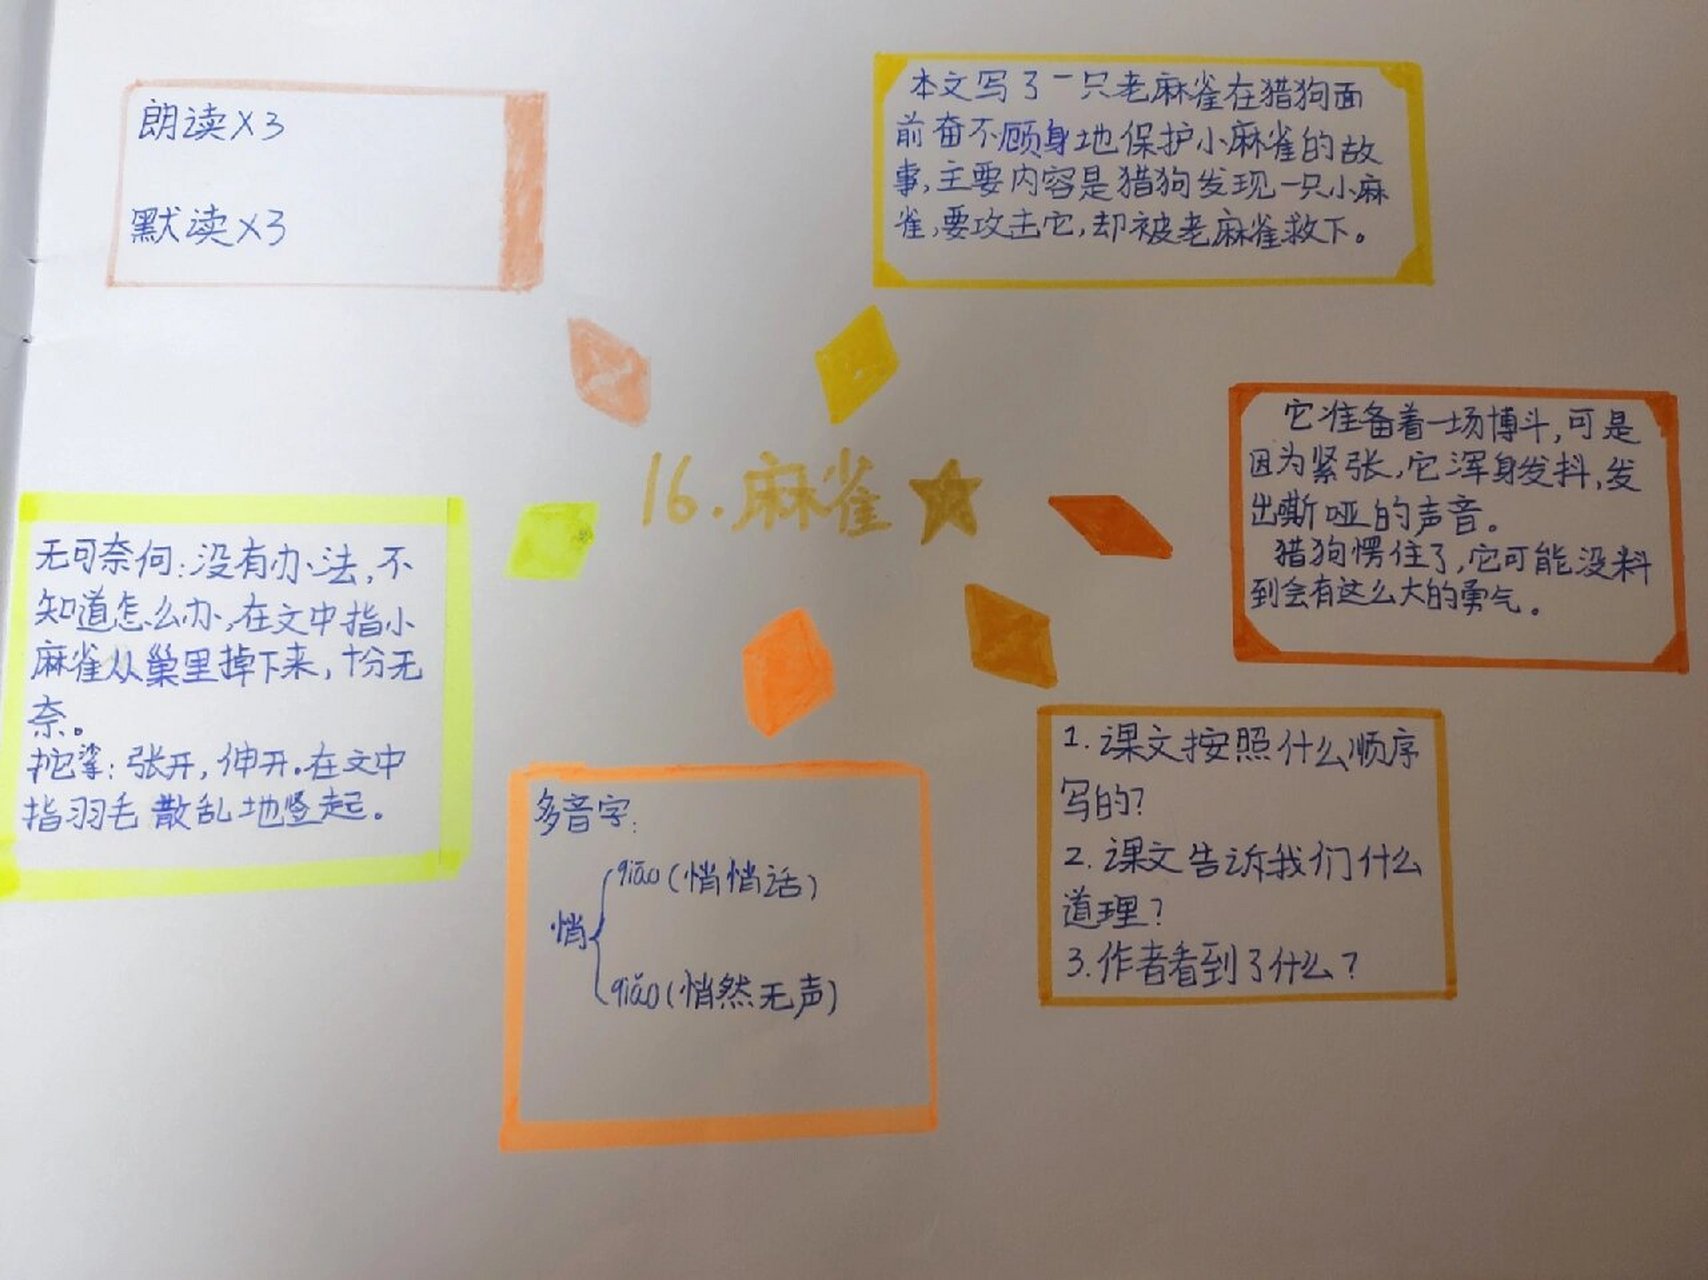 朗读×3
默读×3
本文写了一只老麻雀在猎狗面
前奋不顾身地保护小麻雀的故
事,主要内容是猎狗发现一只小麻
雀,要攻击它,却被老麻雀救下。
16.麻雀
它准备着一场博斗,可是
因为紧张,它浑身发抖,发
出嘶哑的声音。
猎狗愣住了,它可能没料
到会有这么大的勇气。
无可奈何:没有办法,不
知道怎么办,在文中指小
麻雀从巢里掉下来,十分无
奈。
拕挲:张开,伸开.在文中
指羽毛散乱地竖起。
多音字:
悄
qiāo(悄悄话)
qiǎo(悄然无声)
1.课文按照什么顺序
写的?
2.课文告诉我们什么
道理?
3.作者看到了什么?